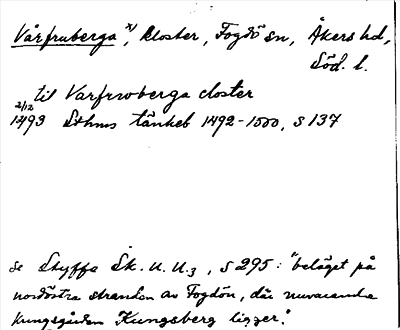 Vårfruberga x), kloster, Fogdö sn, Åkers hd,
Söd. l.
til Varfrwberga closter
2/12
1493 Sthms tänkeb 1492-1500, s 137
se Styffe Sk. u. U.3, s 295: "beläget på
nordöstra stranden av Fogdön, där nuvarande
kungsgården Kungsberg ligger."